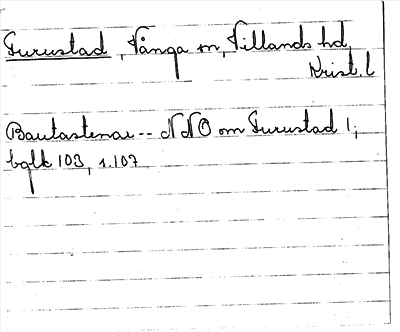 Furustad, Vånga sn, Villands hd,
Krist. l
Bautastenar -- NNO om Furustad 1;
bglk 103, s.107